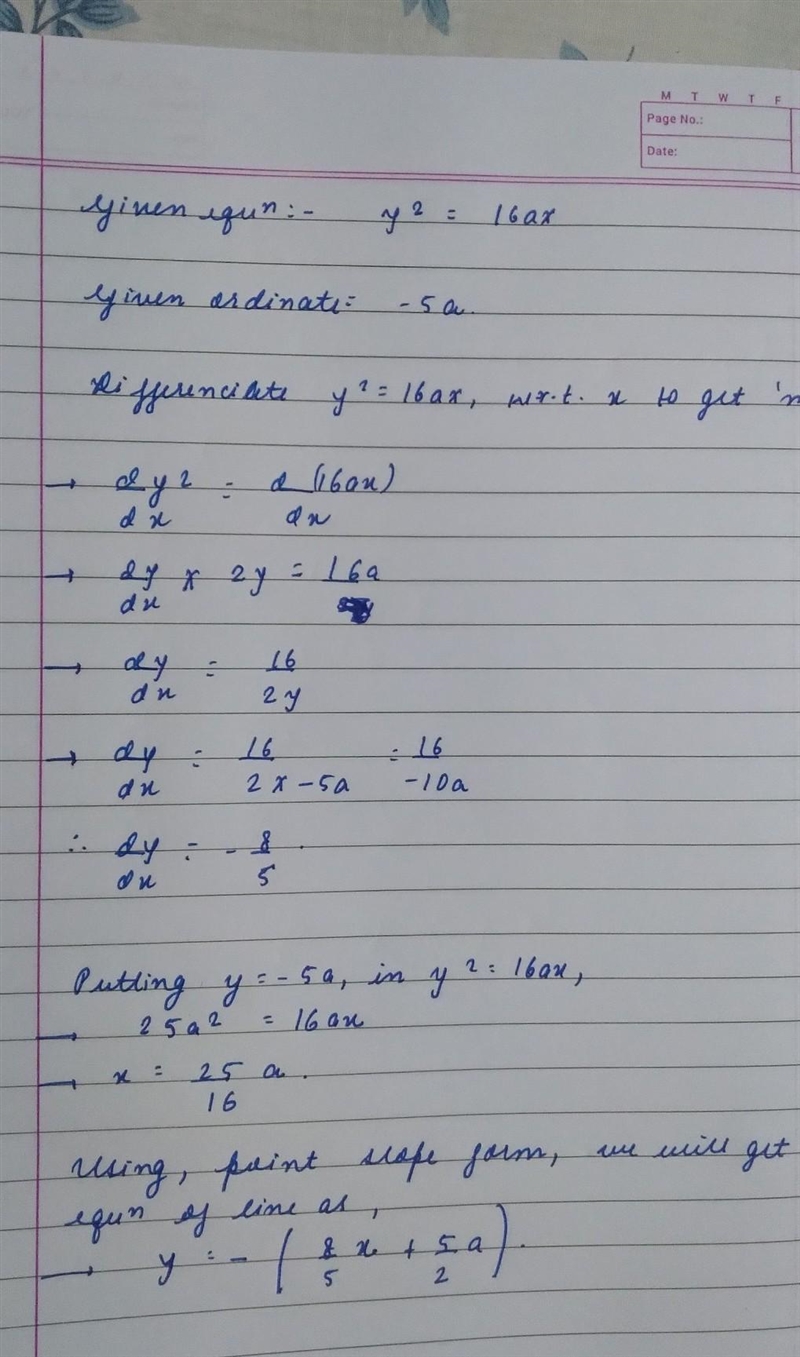 M T W T F
Page No.:
Date:
Given equⁿ :- y² = 16ax
Given ordinate = -5a.
Differenciate y² = 16ax, w.r.t. x to get 'm
→ dy²/dx = d(16ax)/dx
→ dy/dx × 2y = 16a
→ dy/dx = 16/2y
→ dy/dx = 16/2×-5a = 16/-10a
∴ dy/dx = -8/5.
Putting y = -5a, in y² = 16ax,
→ 25a² = 16ax
→ x = 25/16 a.
Using, point slope form, we will get
equn of line as,
→ y = -(8/5 x + 5/2 a).